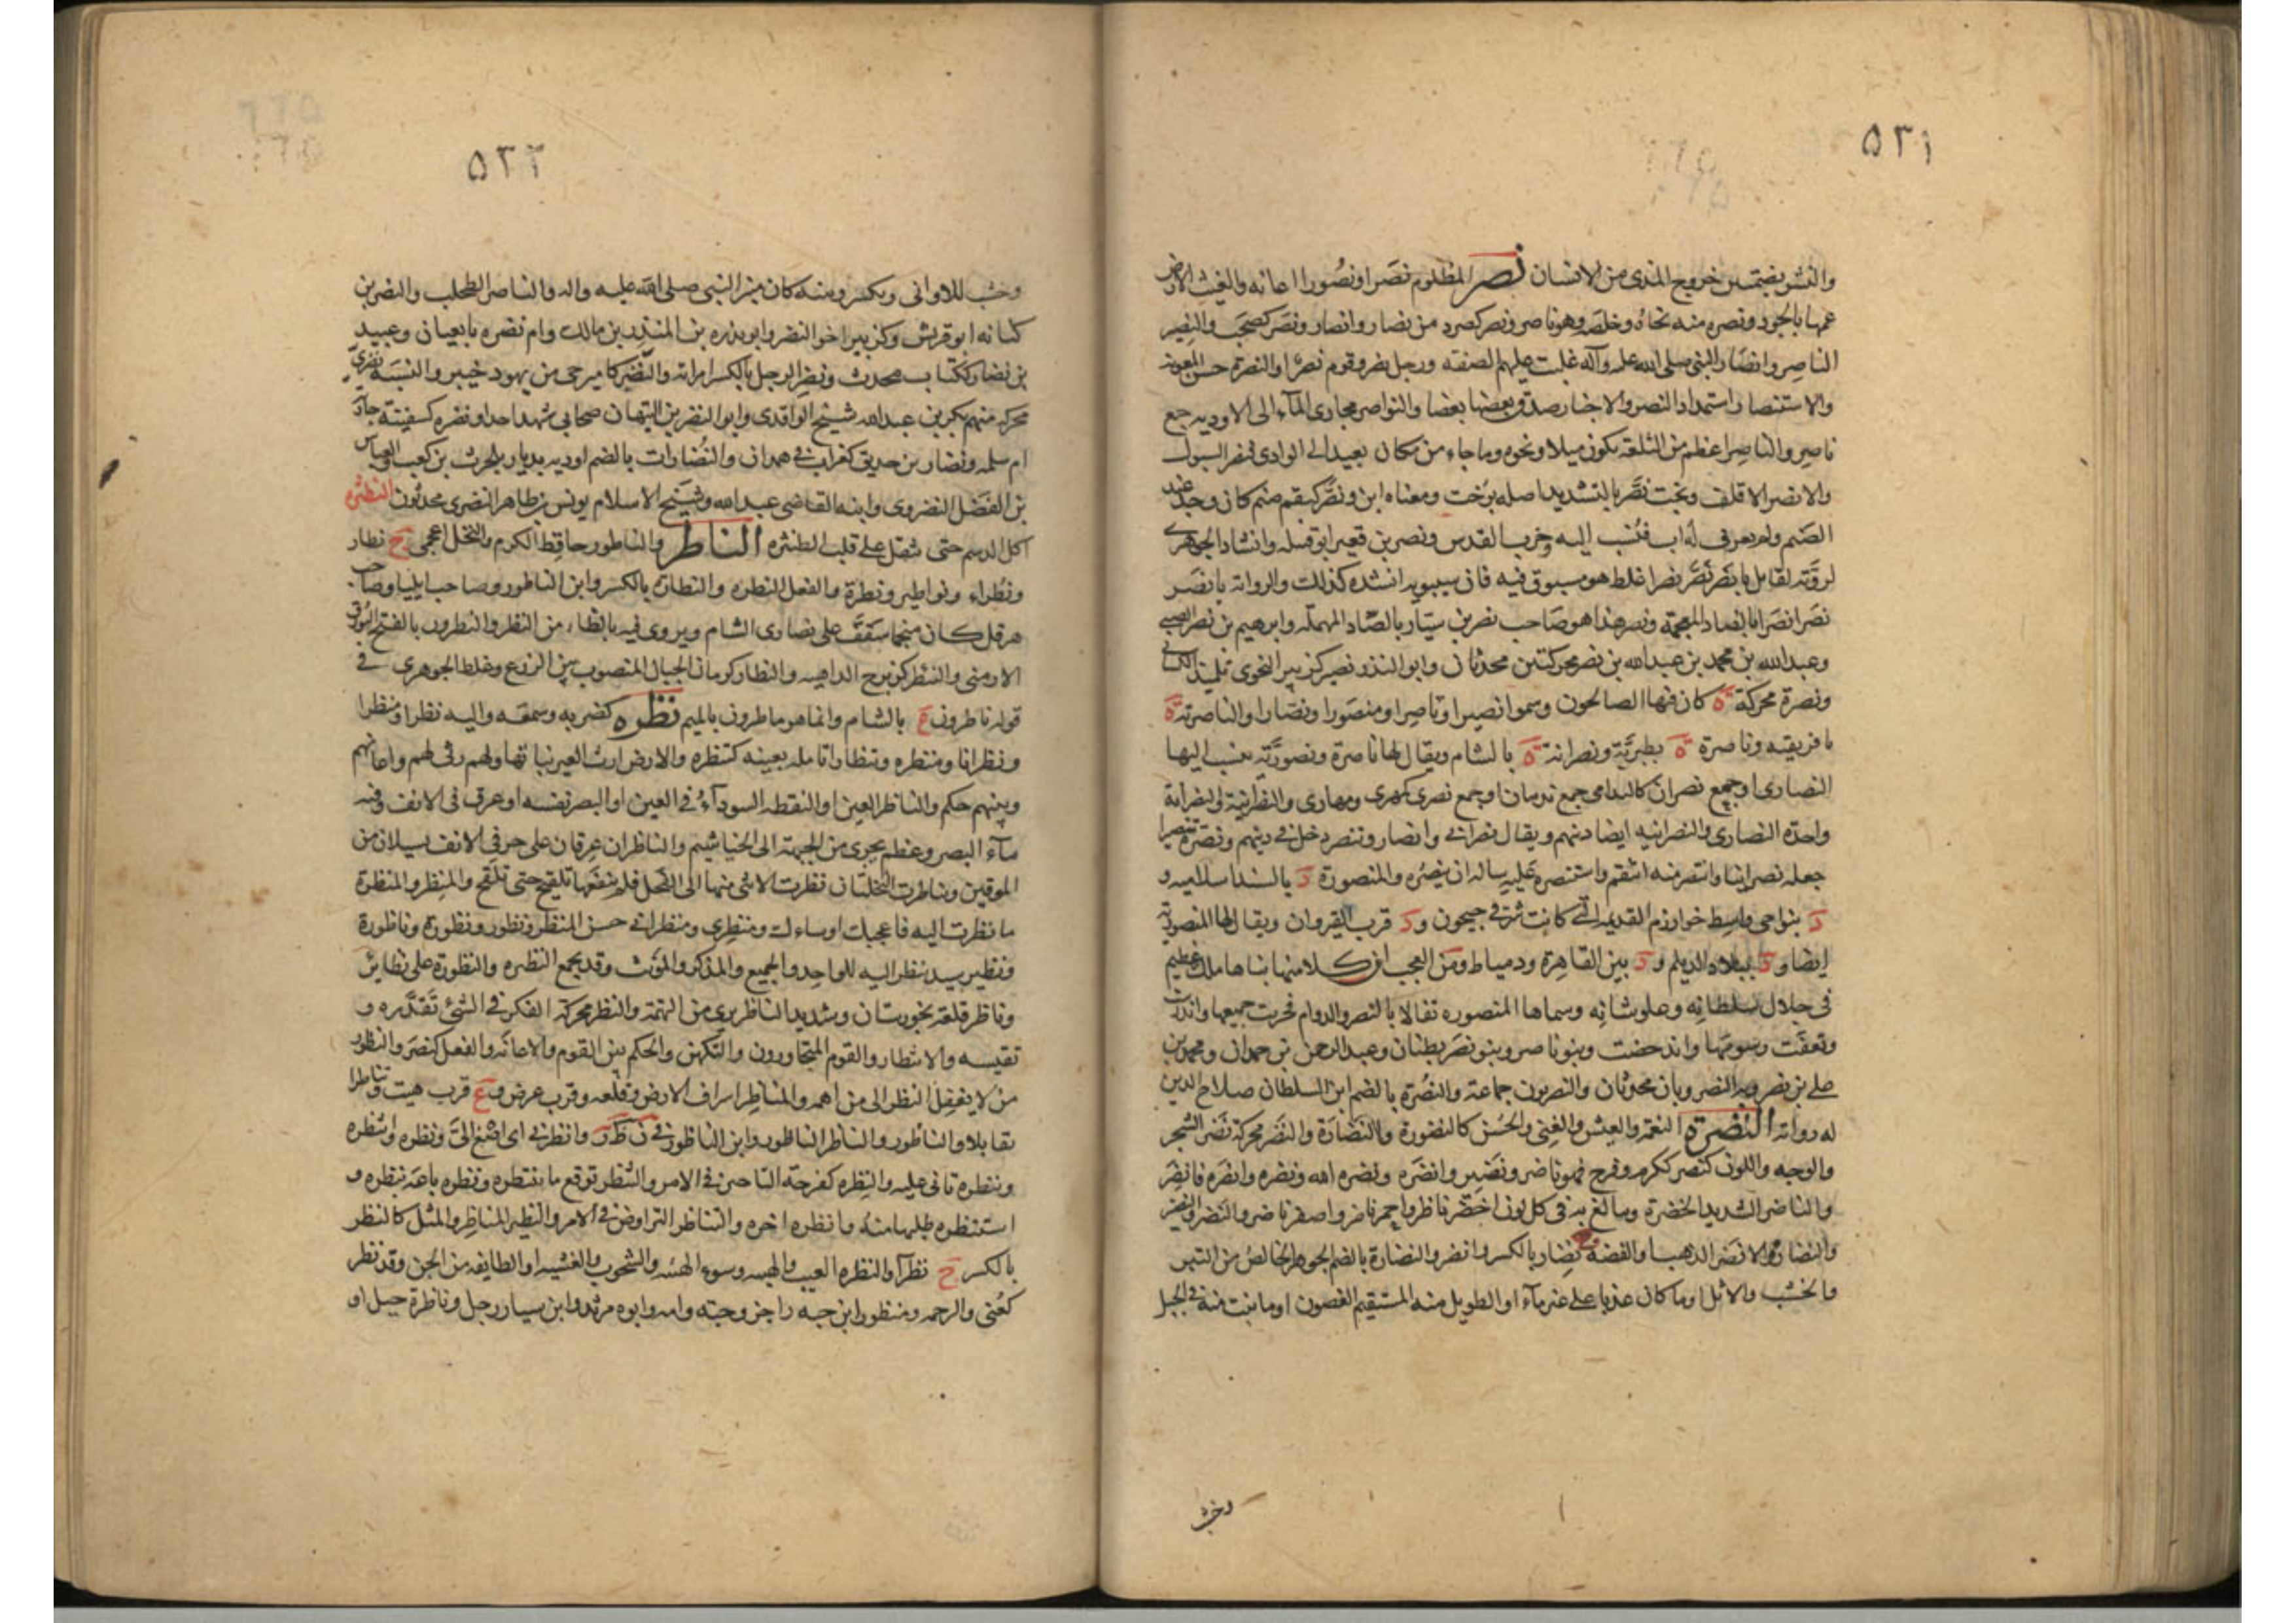 ٥٢١
والنشر بضمتين خروج المذى من الانسان نصر المظلوم نصرا ونصورا اعانه والغيث الارض
عمها بالجود ونصره منه نجاه وخلصه وهو ناصر ونصر كصرد من نصار وانصار ونصر كصحب والنصير
الناصر وانصار النبى صلى الله عليه وآله غلبت عليهم الصفة ورجل نصر وقوم نصر او النصرة حسن المعونة
والاستنصار استمداد النصر والاخبار صدق بعضها بعضا والنواصر مجارى المآء الى الاودية جمع
ناصر والناصر اعظم من التلعة يكون ميلا ونحوه وما جاء من مكان بعيد الى الوادى ففجر السيول
والانصر الاقلف وبخت نصر بالتشديد اصله بوخت ومعناه ابن ونصر كبقم صنم كان وجد عند
الصنم ولم يعرف له اب فنسب اليه وخرب القدس ونصر بن قعين ابو قبيله وانشاد الجوهرى
لرؤبة لقائل يا نصر نصر نصرا غلط هو مسبوق فيه فان سيبويه انشده كذلك والرواية يا نضر
نضرا نضرا بالضاد المعجمة ونضر هذا هو صاحب نصر بن سيار بالصاد المهملة وابرهيم بن نصر الضبى
وعبد الله بن محمد بن عبد الله بن نصر محركتين محدثان وابو المنذر نصير كزبير النحوى تلميذ الكسائى
ونصرة محركة ة كان فيها الصالحون وسموا نصيرا وناصرا ومنصورا ونصارا والناصرية ة
بافريقيه وناصرة ة بطبرية ونصرانة ة بالشام ويقال لها ناصرة ونصورية ينسب اليها
النصارى او جمع نصران كالندامى جمع ندمان او جمع نصرى كمهرى ومهارى والنصرانية والنصرانة
واحدة النصارى والنصرانيه ايضا دينهم ويقال نصرانى وانصار وتنصر دخل فى دينهم ونصره تنصيرا
جعله نصرانيا وانتصر منه انتقم واستنصره عليه ساله ان ينصره والمنصورة د بالسند اسلاميه و
د بنواحى واسط خوارزم القديمة التى كانت شرقى جيحون ود قرب القيروان ويقال لها المنصورية
ايضا ود ببلاد الديلم ود بين القاهرة ودمياط ومن العجب ان كلا منها بناها ملك عظيم
فى جلال سلطانه وعلو شانه وسماها المنصوره تفالا بالنصر والدوام فخربت جميعها واندرست
وتعفت رسومها واندحضت وبنو ناصر وبنو نصر بطنان وعبد الرحمن بن حمدان ومحمد بن
على بن نصرويه النصرويان محدثان والنصريون جماعة والنصرة بالضم ابن السلطان صلاح الدين
له رواية النضرة النعمة والعيش والغنى والحسن كالنضورة والنضارة والنضر محركة نضر الشجر
والوجه واللون كنصر وكرم وفرح فهو ناضر ونضير وانضر ونضره الله ونضره وانضره فانضر
والناضر الشديد الخضرة ويبالغ به فى كل لون اخضر ناضر واحمر ناضر واصفر ناضر والنضر والنضير
والنضار والانضر الذهب او الفضة ج نضار بالكسر وانضر والنضارة بالضم الجوهر الخالص من التبر
والخشب والاثل او ما كان عذيا على غير مآء او الطويل منه المستقيم الغصون او ما ينبت منه فى الجبل
وخشب
٥٢٢
وخشب للاوانى ويكسر ومنه كان منبر النبى صلى الله عليه واله والناضر الطحلب والنضر بن
كنانه ابو قريش وكزبير اخو النضر وابو نضره بن المنذر بن مالك وام نضره تابعيان وعبيد
بن نضار ككتاب محدث ونضر الرجل بالكسر امراته والنضير كامير حى من يهود خيبر والنسبة نضرى
محركه منهم بكر بن عبد الله شيخ الواقدى وابو النضر بن التيهان صحابى شهد احدا ونضره كسفينة جارية
ام سلمه ونضار بن حديق كغراب فى همدان والنضارات بالضم اودية بديار بلحرث بن كعب والعباس
بن الفضل النضروى وابنه القاضى عبد الله وشيخ الاسلام يونس بن طاهر النضرى محدثون النطثره
اكل الدسم حتى يثقل على قلبه الطنثره الناطر والناطور حافظ الكرم والنخل اعجمى ج نطار
ونطراء ونواطير ونطرة والفعل النطره والنطارة بالكسر وابن الناطور وصاحب ايلياء وصاحب
هرقل كان منجما سقف على نصارى الشام ويروى فيه بالظاء من النظر والنطرون بالفتح البورق
الارمنى والنيطر كزبرج الداهيه والنطار كرمان الخيال المنصوب بين الزرع وغلط الجوهرى فى
قوله ناطرون ع بالشام وانما هو ماطرون بالميم نظره كضربه وسمعه واليه نظرا ومنظرا
ونظرانا ومنظره وتنظارا تامله بعينه كتنظره والارض ارت العين نباتها ولهم رثى لهم واعانهم
وبينهم حكم والناظر العين او النقطه السودآء فى العين او البصر نفسه او عرق فى الانف وفيه
مآء البصر وعظم يجرى من الجبهة الى الخياشيم والناظران عرقان على حرفى الانف يسيلان من
الموقين وناظرت النخلتان نظرت الانثى منهما الى الفحل فلم ينفعها تلقيح حتى تلقح والمنظر والمنظرة
ما نظرت اليه فاعجبك او ساءك ومنظرى ومنظرانى حسن المنظر ونظور ونظورة وناظورة
ونظير سيد ينظر اليه للواحد والجميع والمذكر والمؤنث وقد يجمع النظيره والنظورة على نظائر
وناظر قلعة بخوزستان وشديد الناظر برى من التهمة والنظر محركة الفكر فى الشئ تقدره و
تقيسه والانتظار والقوم المتجاورون والتكهن والحكم بين القوم والاعانة والفعل كنصر والنظور
من لا يغفل النظر الى من اهمه والمناظر اشراف الارض وقلعه وقرب عرض وع قرب هيت وتناظرا
تقابلا والناظور والناظر الناطور وابن الناظور فى ن ط ر وانظرنى اى اصغ الى ونظره وانتظره
وتنظره تانى عليه والنظره كفرحة التاخير فى الامر والتنظر توقع ما تنتظره ونظره باعه بنظره و
استنظره طلبها منه وانظره اخره والتناظر التراوض فى الامر والنظير المناظر والمثل كالنظر
بالكسر ج نظرآء والنظره العيب والهيبه وسوء الهيئه والشحوب والغشية او الطايفه من الجن وقد نظر
كعنى والرحمه ومنظور ابن حبه راجز وحبته وامه وابوه مرثد وابن سيار رجل وناظرة جبل او